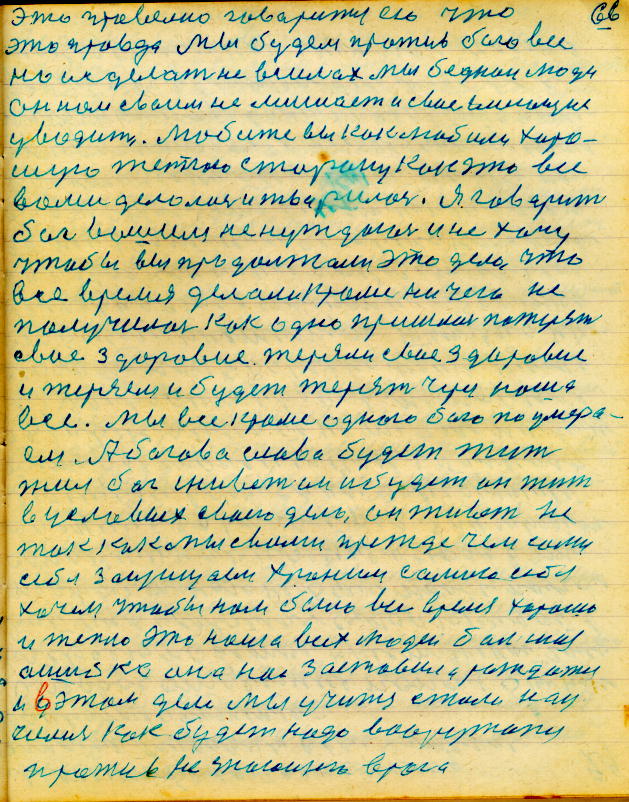 66
это правельно говарити ето что
это правда Мы будем против бога все
но и сделат не всилах мы беднои люди
он нам своим не мишает а свое
уводит. Любите вы как любили харо-
шую теплою сторону как это все
вами делолос и тварилос. Я говарит
бог вашим не нуждаюс и не хочу
чтобы вы продолжали это дело, что
все время делали кроме ничего не
получилос как одно пришлос потерят
свое здоровие. теряли свое здоровие
и теряем и будем терят чуж ноша
все. Мы все кроме одного бога поумера-
ем. А богова слава будет жит
жил бог живет он и будет он жит
в условиях своего дела, он живет не
так как мы своим прежде чем сами
себя защищаем храним самого себя
хочем чтобы нам было все время харошо
и тепло это наша всех людей болшая
ошибка она нас заставила рождатся
и в этом деле мы учится стали нау
чилис как будет надо вааружону
против не жывого врага